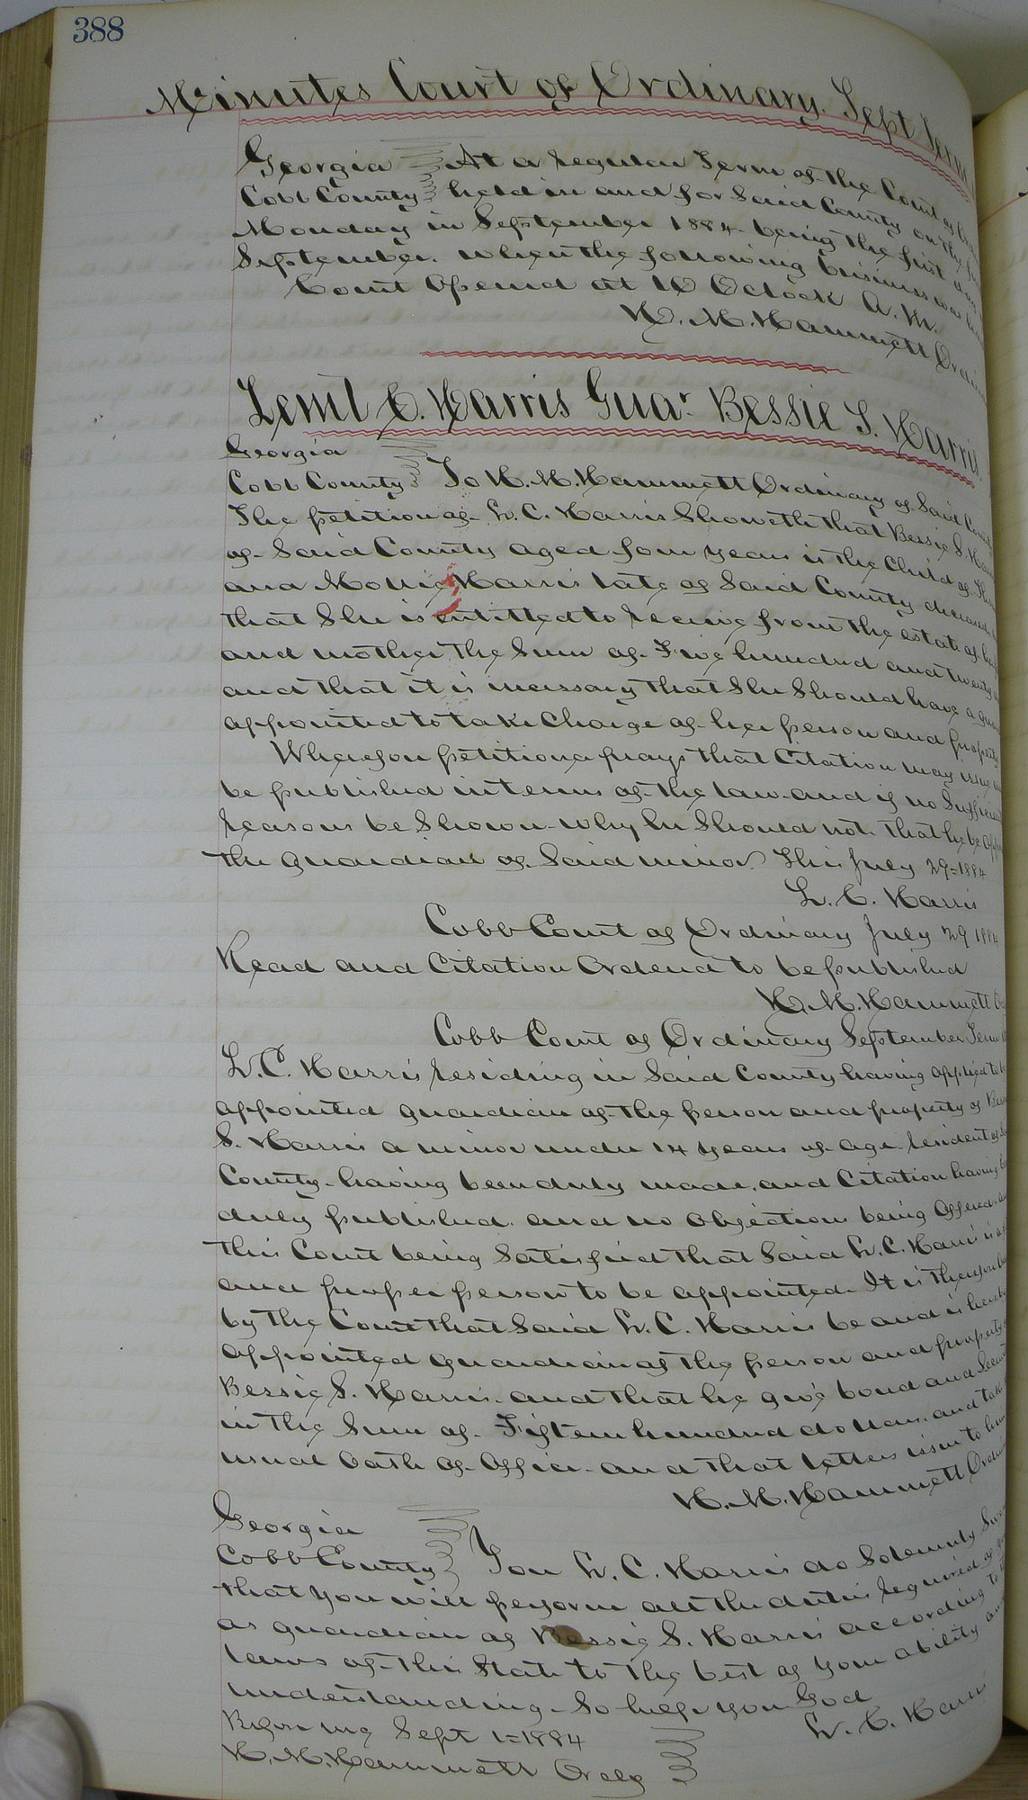 388
Minutes Court of Ordinary. Sept Term
Georgia At a regular Term of the Court of
Cobb County held in and for Said County on the
Monday in September 1884. being the first day
September. when the following business was
Court Opened at 10 Oclock A. M.
H. M. Hammett
C. Harris Guar Bessie S. Harris
Georgia
Cobb County To H. M. Hammett Ordinary of Said County
The petition of L. C. Harris Showeth that Bessie S.
of Said County aged four years is the Child of
and Mollie Harris late of Said County deceased
that She is entitled to receive from the estate of
and mother the Sum of Five hundred and twenty
and that it is necessary that She Should have a
appointed to take Charge of her person and property
Wherefore petitioner prays that Citation may issue
be published in terms of the law. and if no Sufficient
reasons be Shown why he Should not. that he be
the guardian of Said minor This July 29=1884
L. C. Harris
Cobb Court of Ordinary July 29 1884
Read and Citation Ordered to be published
H. M. Hammett
Cobb Court of Ordinary September Term
L. C. Harris residing in Said County having applied to
appointed guardian of the person and property of
S. Harris a minor under 14 years of age resident of
County. having been duly made. and Citation having
duly published. and no objection being offered.
this Court being Satisfied that Said L. C. Harris is
and proper person to be appointed. It is therefore
by the Court that Said L. C. Harris be and is hereby
appointed guardian of the person and property
Bessie S. Harris. and that he give bond and
in the Sum of Fifteen hundred dollars. and take
usual Oath of Office. and that letters issue to him
H. M. Hammett
Georgia
Cobb County You L. C. Harris do Solemnly
that you will perform all the duties required of
as guardian of Bessie S. Harris according to
laws of this State to the best of your ability and
understanding. So help you God
Before me Sept 1=1884 L. C. Harris
H. M. Hammett Ordy